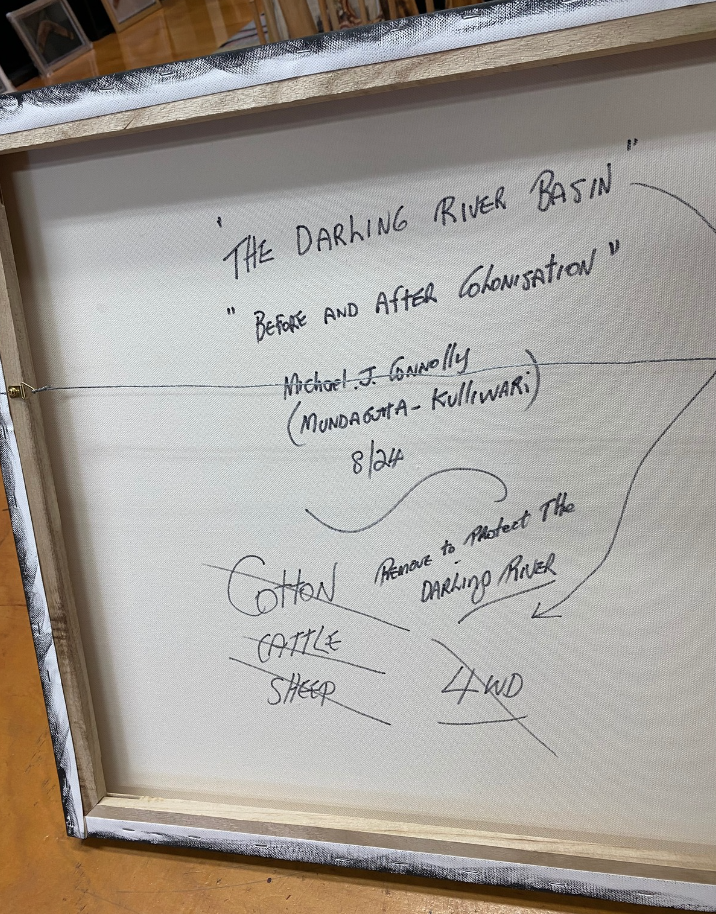 'THE DARLING RIVER BASIN"
"BEFORE AND AFTER COLONISATION"
Michael. J. CONNOLLY
(MUNDAGUTTA - KULLIWARI)
8/24
REMOVE to PROTECT THE
DARLING RIVER
COTTON
CATTLE
SHEEP
4WD